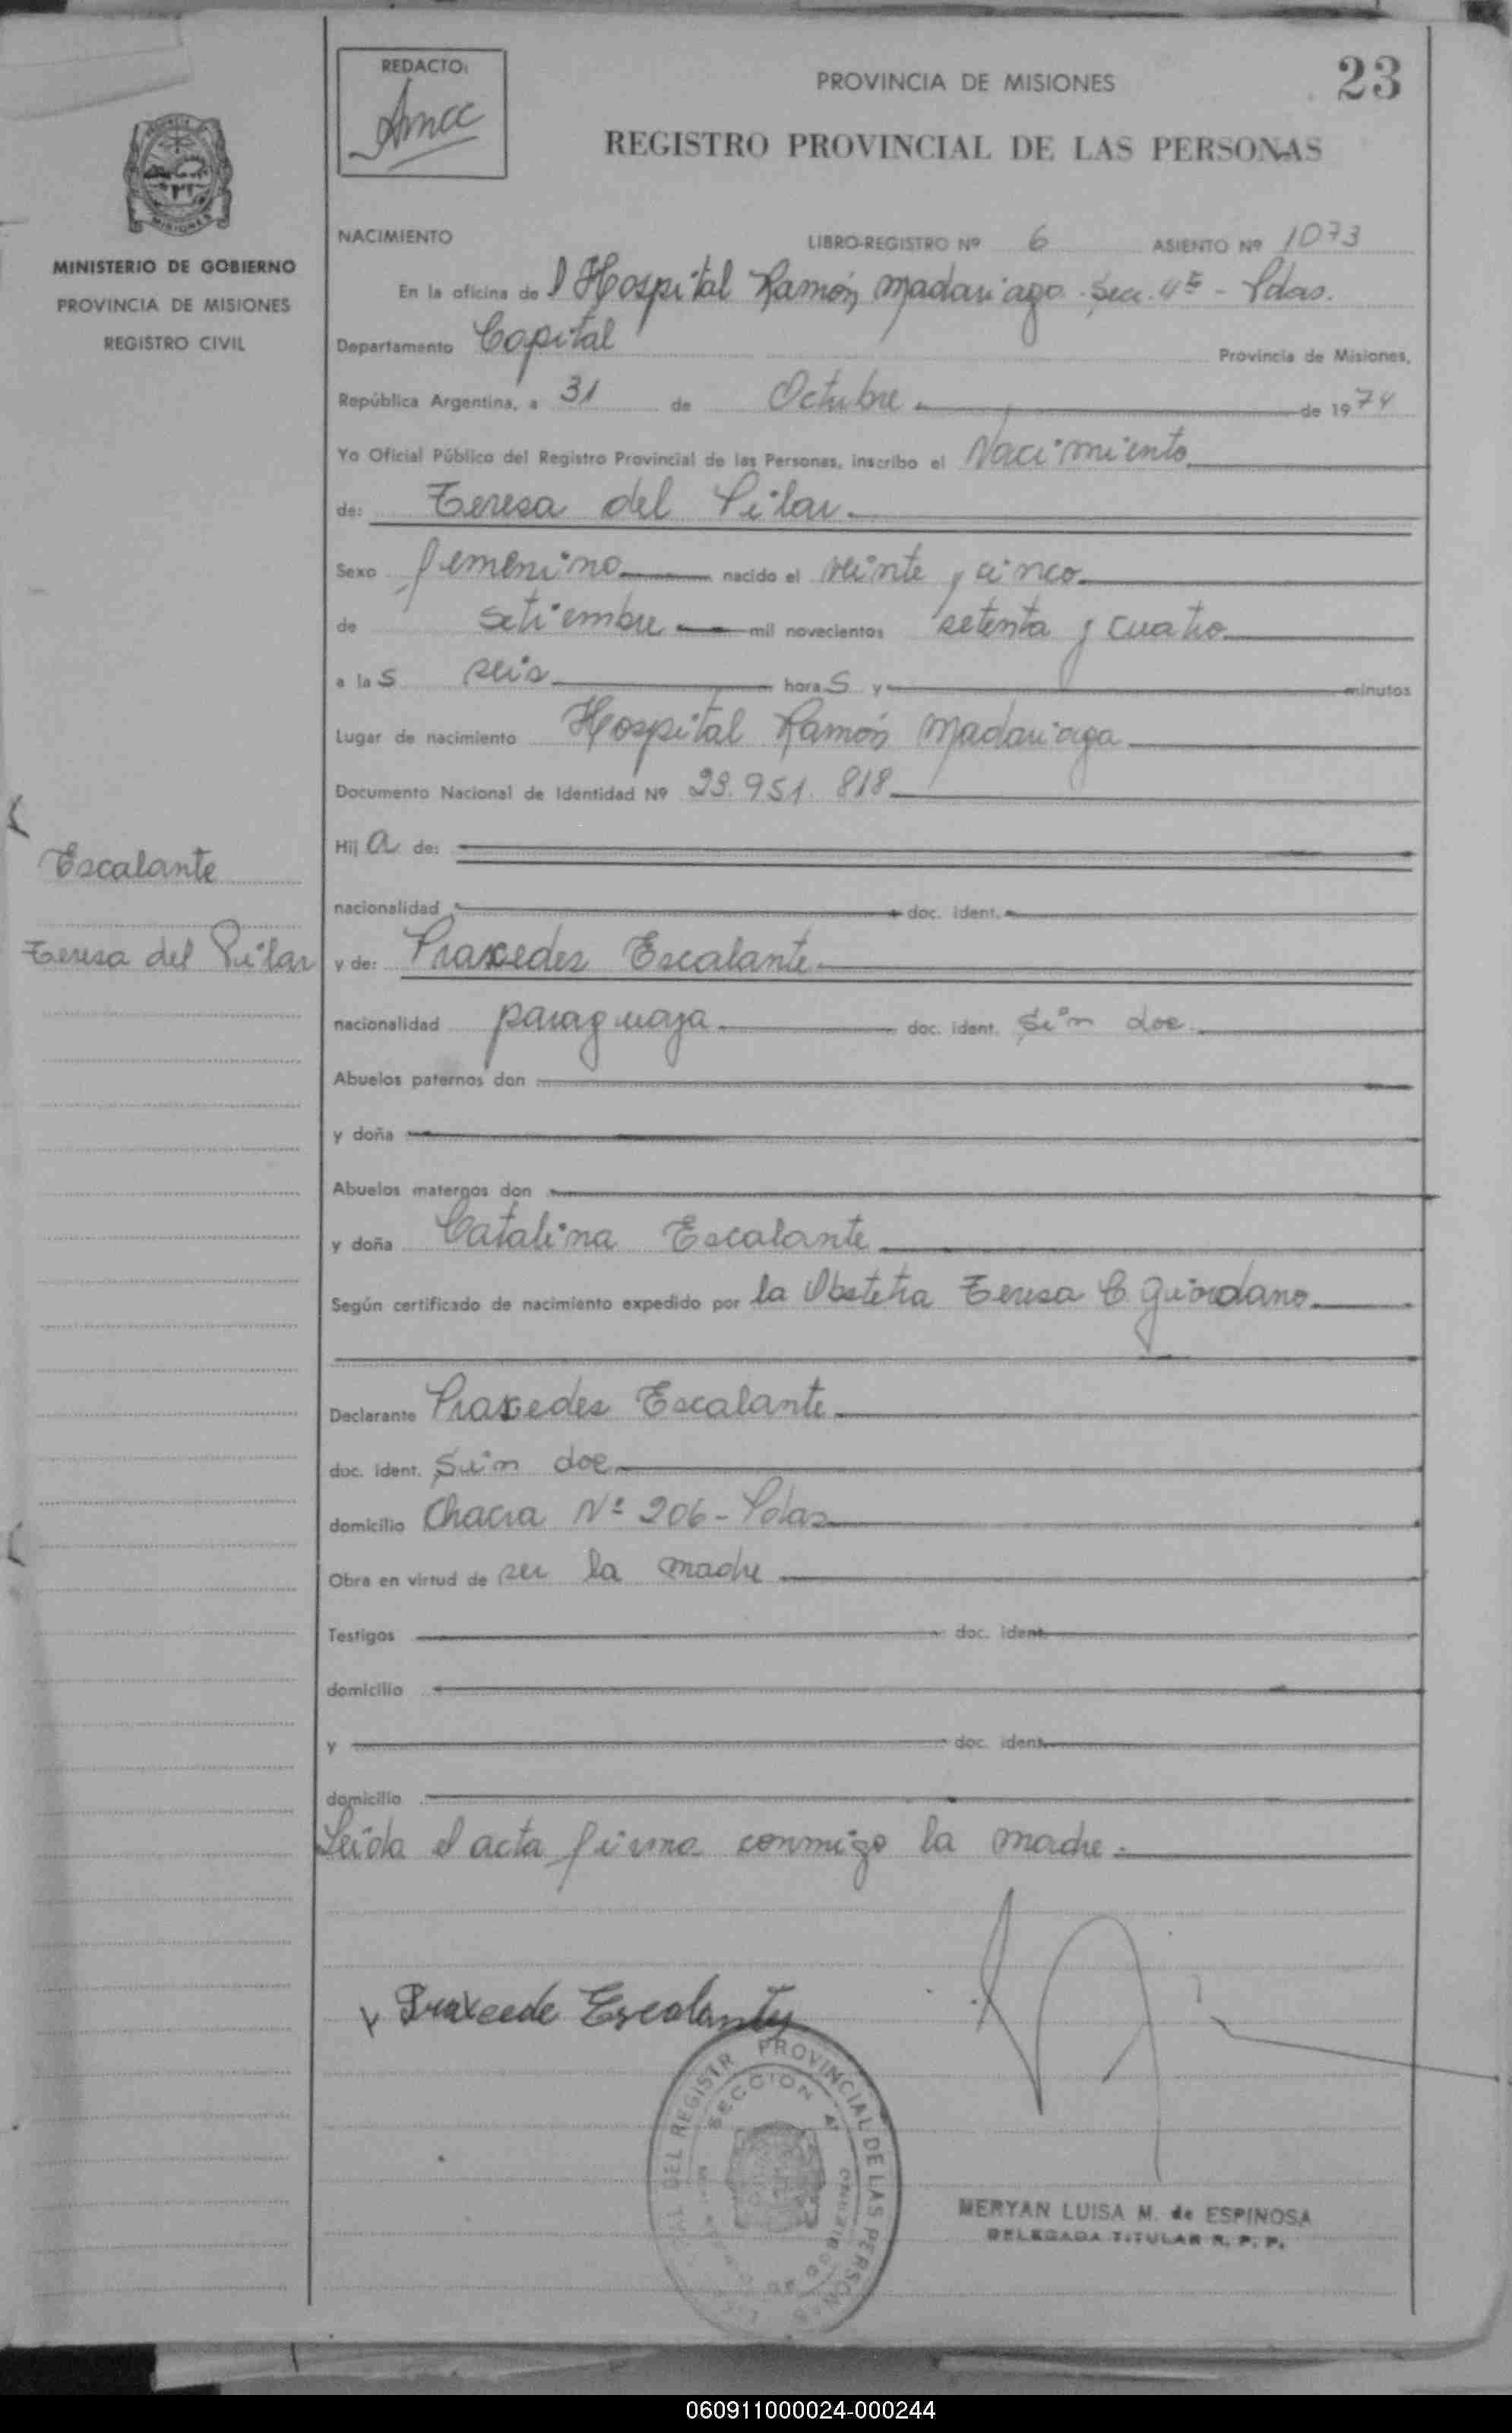 REDACTO:
Amcc
PROVINCIA DE MISIONES
23
REGISTRO PROVINCIAL DE LAS PERSONAS
MISIONES
MINISTERIO DE GOBIERNO
PROVINCIA DE MISIONES
REGISTRO CIVIL
NACIMIENTO
LIBRO-REGISTRO Nº 6 ASIENTO Nº 1073
En la oficina de l Hospital Ramón Madariaga - Secc. 4ª - Pdas.
Departamento Capital Provincia de Misiones,
República Argentina, a 31 de Octubre de 1974
Yo Oficial Público del Registro Provincial de las Personas, inscribo el Nacimiento
de: Teresa del Pilar.
Sexo femenino nacido el veinte y cinco
de setiembre mil novecientos setenta y cuatro
a las seis horas y minutos
Lugar de nacimiento Hospital Ramón Madariaga
Documento Nacional de Identidad Nº 23.951.818
Hija de:
Escalante
nacionalidad doc. ident.
Teresa del Pilar
y de: Praxedes Escalante
nacionalidad paraguaya doc. ident. Sin doc.
Abuelos paternos don
y doña
Abuelos maternos don
y doña Catalina Escalante
Según certificado de nacimiento expedido por la Obstetra Teresa C. Giordano
Declarante Praxedes Escalante
doc. ident. Sin doc
domicilio Chacra Nº 206 - Pdas
Obra en virtud de ser la madre
Testigos doc. ident.
domicilio
y doc. ident.
domicilio
Leída el acta firma conmigo la madre.
Praxcede Escalante
DEL REGISTR PROVINCIAL DE LAS PERSONAS
SECCION 4ª
MERYAN LUISA M. de ESPINOSA
DELEGADA TITULAR R. P. P.
060911000024-000244